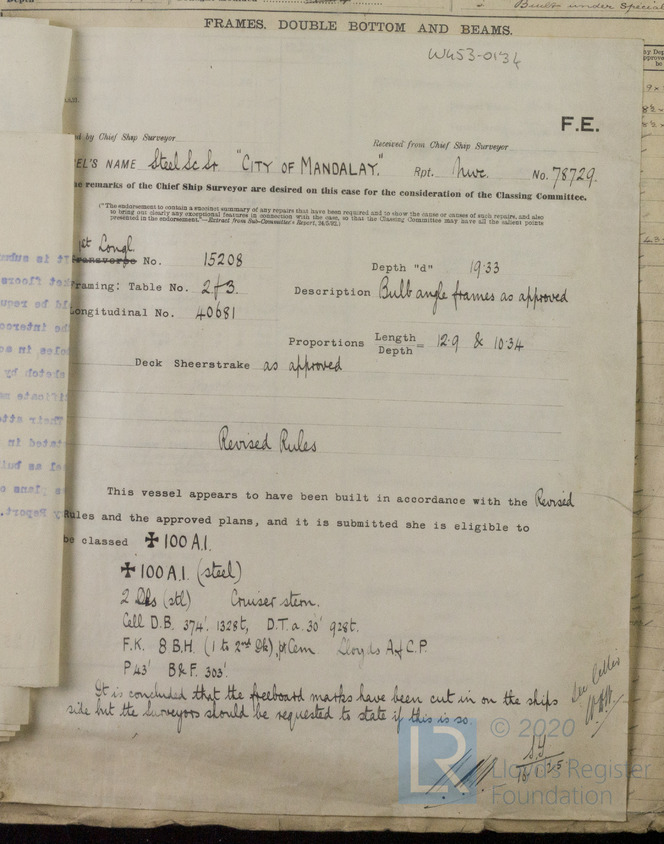 Built under Special
FRAMES. DOUBLE BOTTOM AND BEAMS.
W453-0134
F.E.
ed by Chief Ship Surveyor
Received from Chief Ship Surveyor
EL'S NAME Steel Sc Sr "CITY OF MANDALAY." Rpt. Nwc. No. 78729.
he remarks of the Chief Ship Surveyor are desired on this case for the consideration of the Classing Committee.
("The endorsement to contain a succinct summary of any repairs that have been required and to show the cause or causes of such repairs, and also
to bring out clearly any exceptional features in connection with the case, so that the Classing Committee may have all the salient points
presented in the endorsement."—Extract from Sub-Committee's Report, 24/5/92.)
Longl.
Transverse No. 15208
Depth "d" 19.33
Framing: Table No. 2 & 3.
Description Bulb angle frames as approved
Longitudinal No. 40681
Proportions Length/Depth = 12.9 & 10.34
Deck Sheerstrake as approved
Revised Rules
This vessel appears to have been built in accordance with the Revised
Rules and the approved plans, and it is submitted she is eligible to
be classed ✠ 100 A.1.
✠ 100 A.1. (steel)
2 Dks (stl) Cruiser stern.
Cell D.B. 374'. 1328t, D.T.a. 30' 928t.
F.K. 8 B.H. (1 to 2nd Dk), pt Cem Lloyds A & C.P.
P 43' B & F. 303'.
It is concluded that the freeboard marks have been cut in on the ships
side but the Surveyors should be requested to state if this is so.
© 2020
LR
Lloyd's Register
Foundation